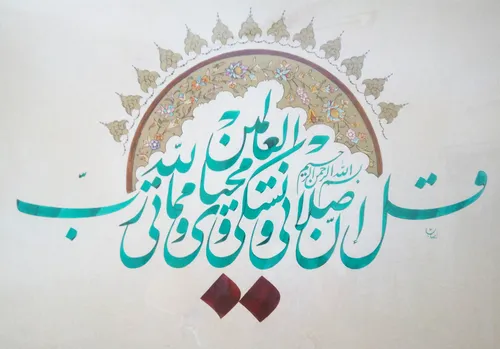 بسم الله الرحمن الرحیم
قل ان صلاتی و نسکی و محیای و مماتی لله رب العالمین